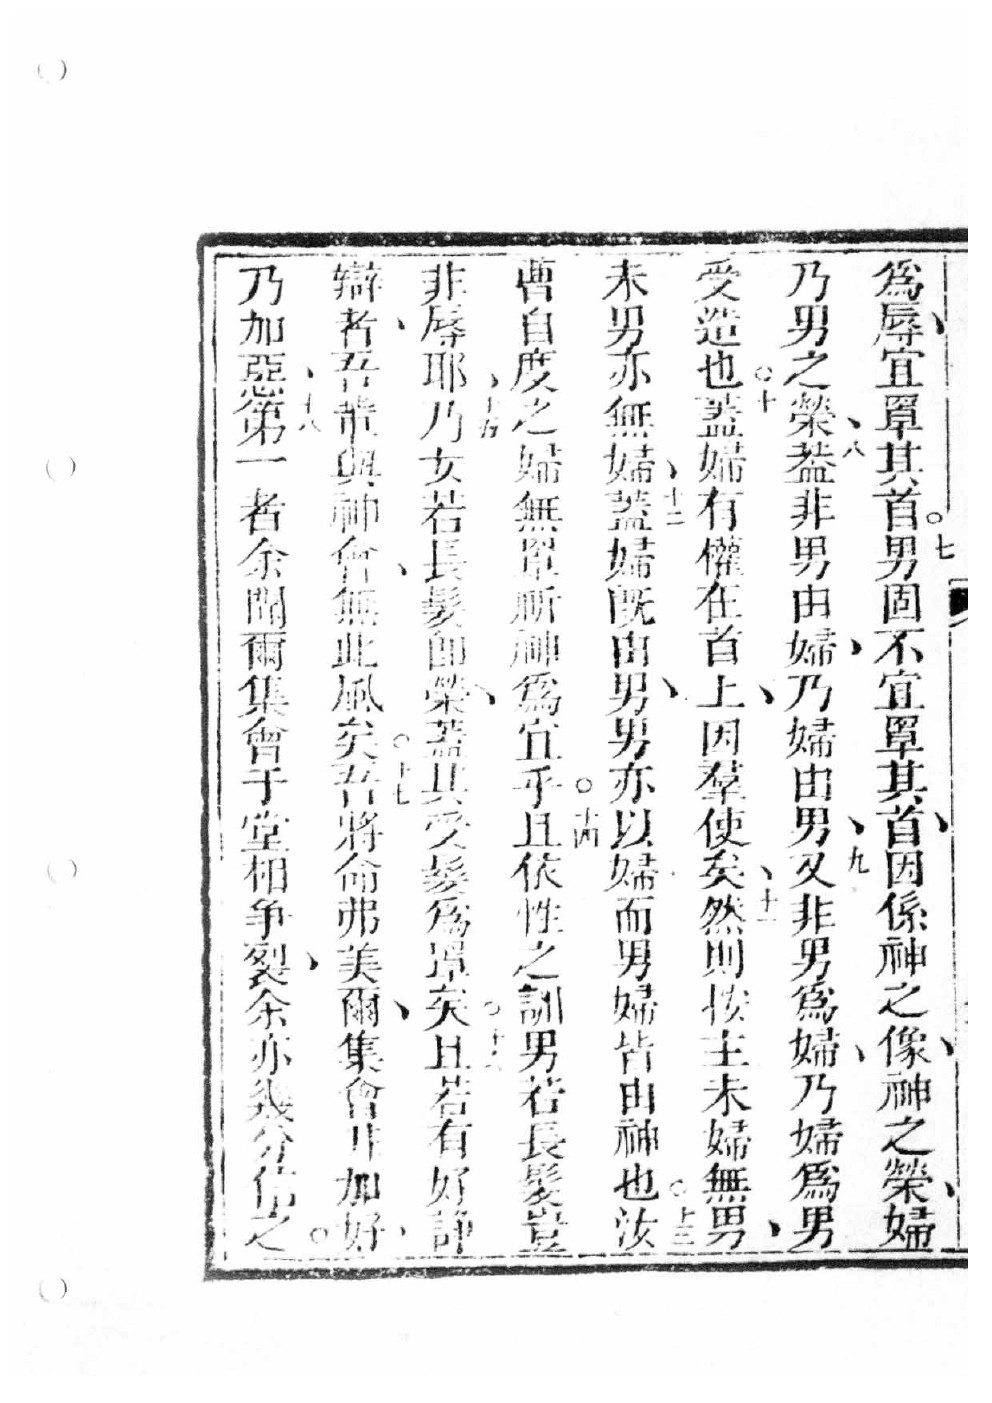 爲辱、宜罩其首。七男固不宜罩其首、因係神之像、神之榮、婦
乃男之榮、八葢非男由婦、乃婦由男、九又非男爲婦、乃婦爲男、
受造也。十葢婦有權在首上、因羣使矣、十一然則按主未婦無男
未男亦無婦、十二葢婦既由男、男亦以婦而男婦皆由神也。十三汝
曹自度之婦無罩祈神爲宜乎。十四且依性之訓男若長髮豈
非辱耶、十五乃女若長髮卽榮、葢其受髮爲罩矣。十六且若有好諍
辯、者吾輩與神會、無此風矣。十七吾將命弗美爾、集會非加好、
乃加惡、十八第一者余聞爾集會于堂相爭裂、余亦幾分信之。